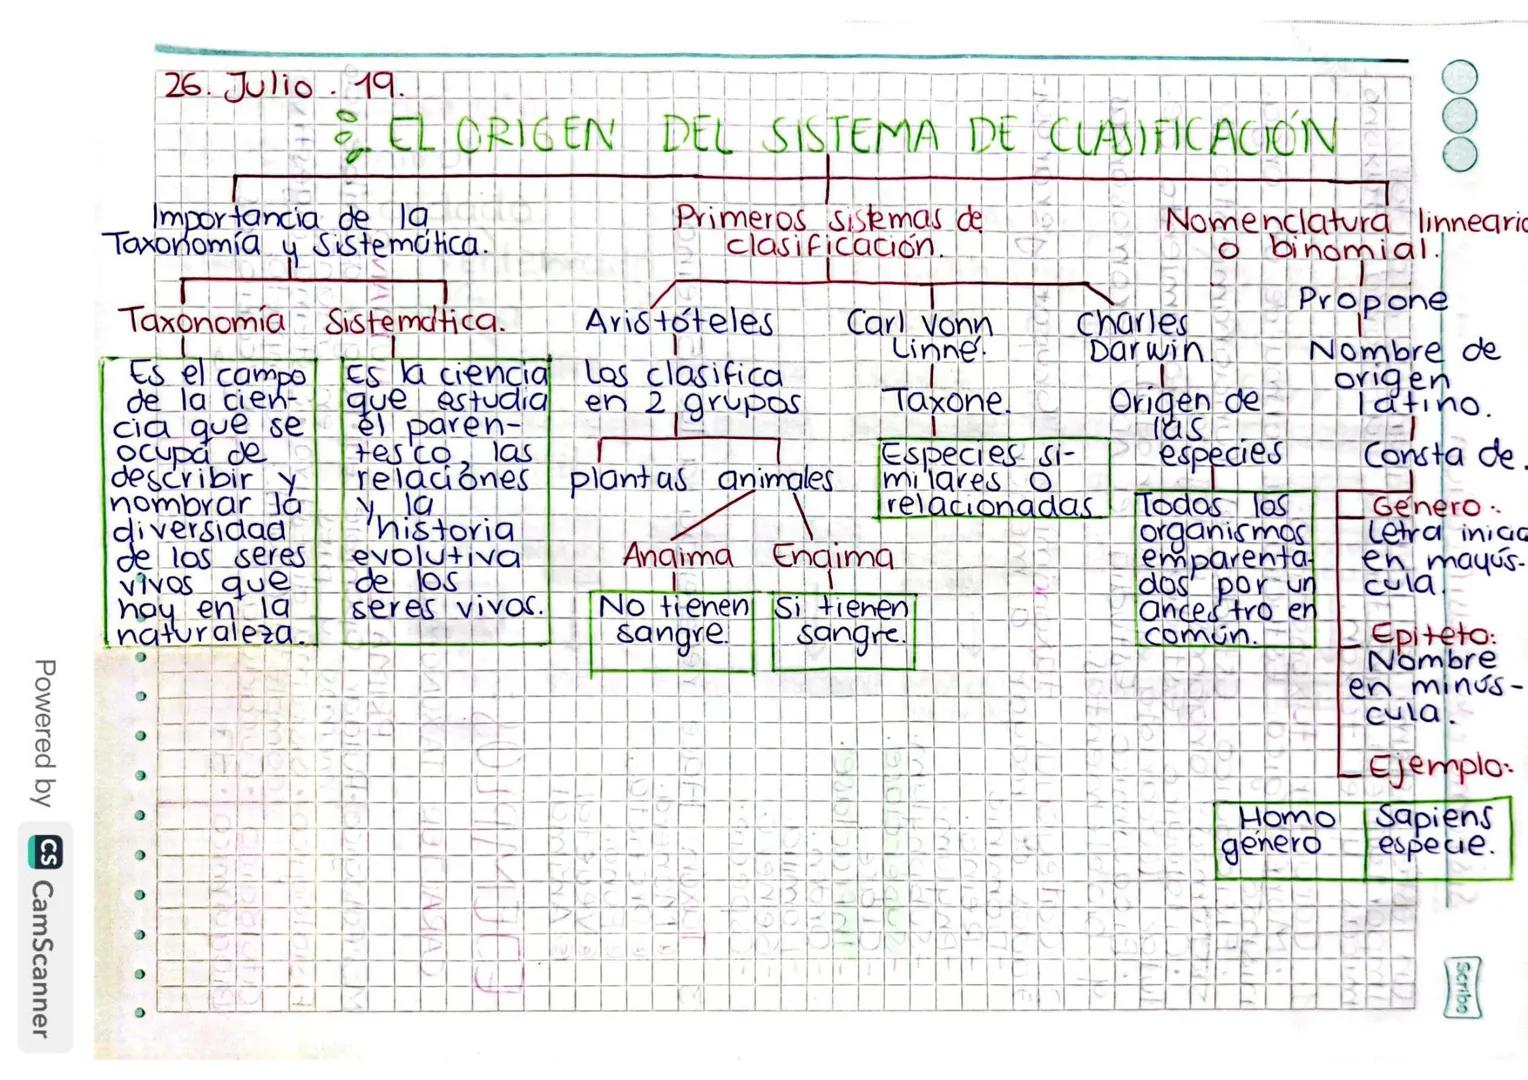 26. Julio. 19.
EL ORIGEN DEL SISTEMA DE CLASIFICACIÓN
Importancia de la
Taxonomía y Sistemática.
Taxonomía
Es el campo
de la cien-
cia que se
ocupa de
describir y
nombrar la
diversidad
de los seres
vivos que
hay en la
naturaleza.
Sistemática.
Es la ciencia
que estudia
el paren-
tesco, las
relaciones
y la
historia
evolutiva
de los
seres vivos.
Primeros sistemas de
clasificación.
Aristóteles
Los clasifica
en 2 grupos
plantas animales
Anaima
No tienen
sangre.
Enaima
Si tienen
sangre.
Carl Vonn
Linné.
Taxone.
Especies si-
milares o
relacionadas
Charles
Darwin.
Origen de
las
especies
Todos los
organismos
emparenta-
dos por un
ancestro en
común.
Nomenclatura linneari
o binomial.
Propone
Nombre de
origen
latino.
Consta de.
Género:
Letra inicia
en mayús-
cula.
Epiteto:
Nombre
en minús-
cula.
Ejemplo:
Homo
género
Sapiens
especie.
Scribe
Powered by CS CamScanner